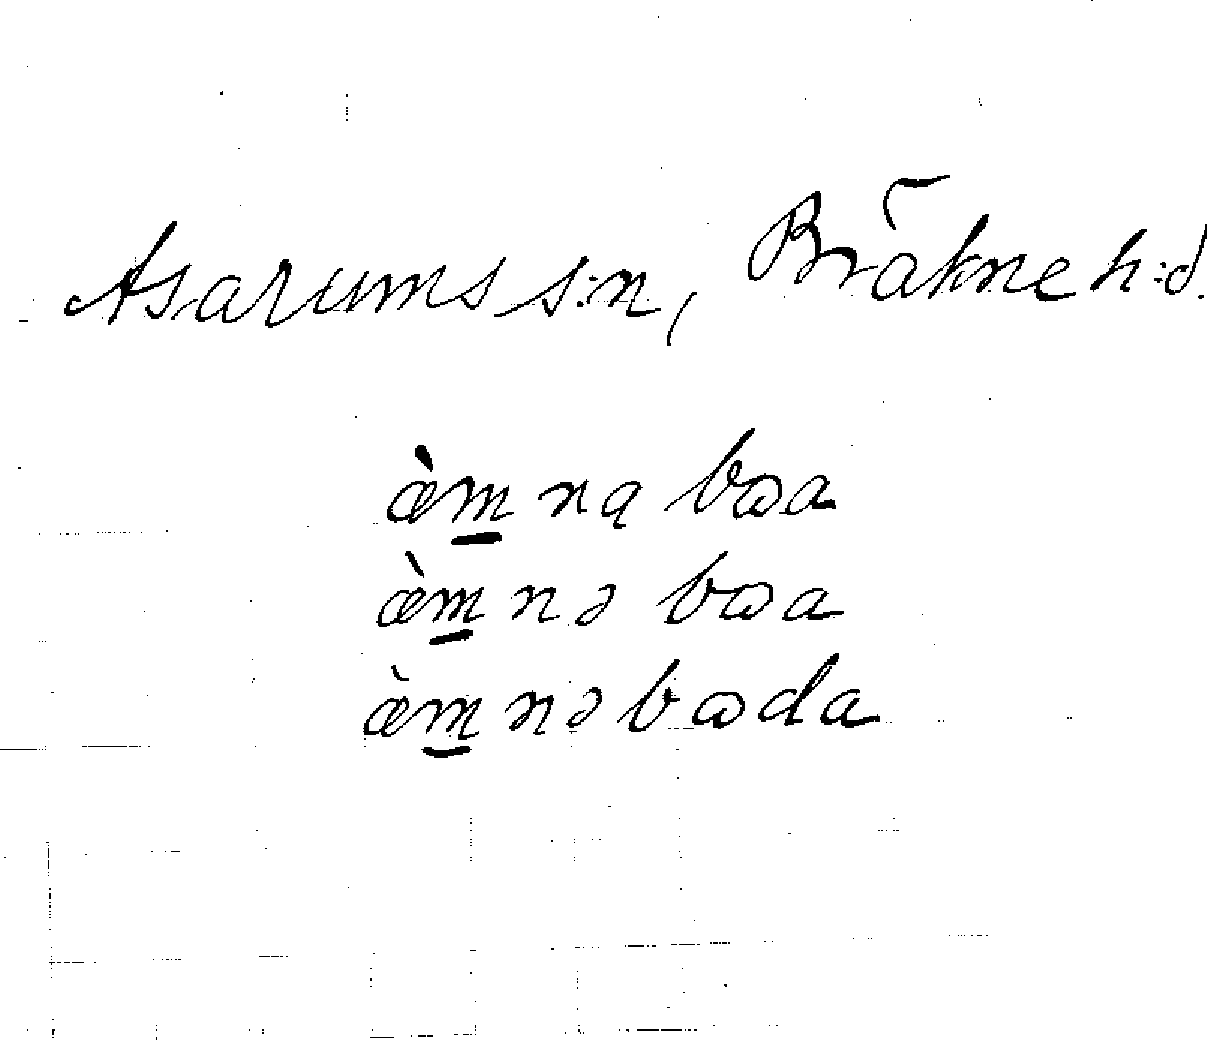 Asarums s:n, Bräkne h:d.
æ̀m̲ ną bɷa
æ̀m̲ nə bɷa
æ̀m̲ nə bɷda